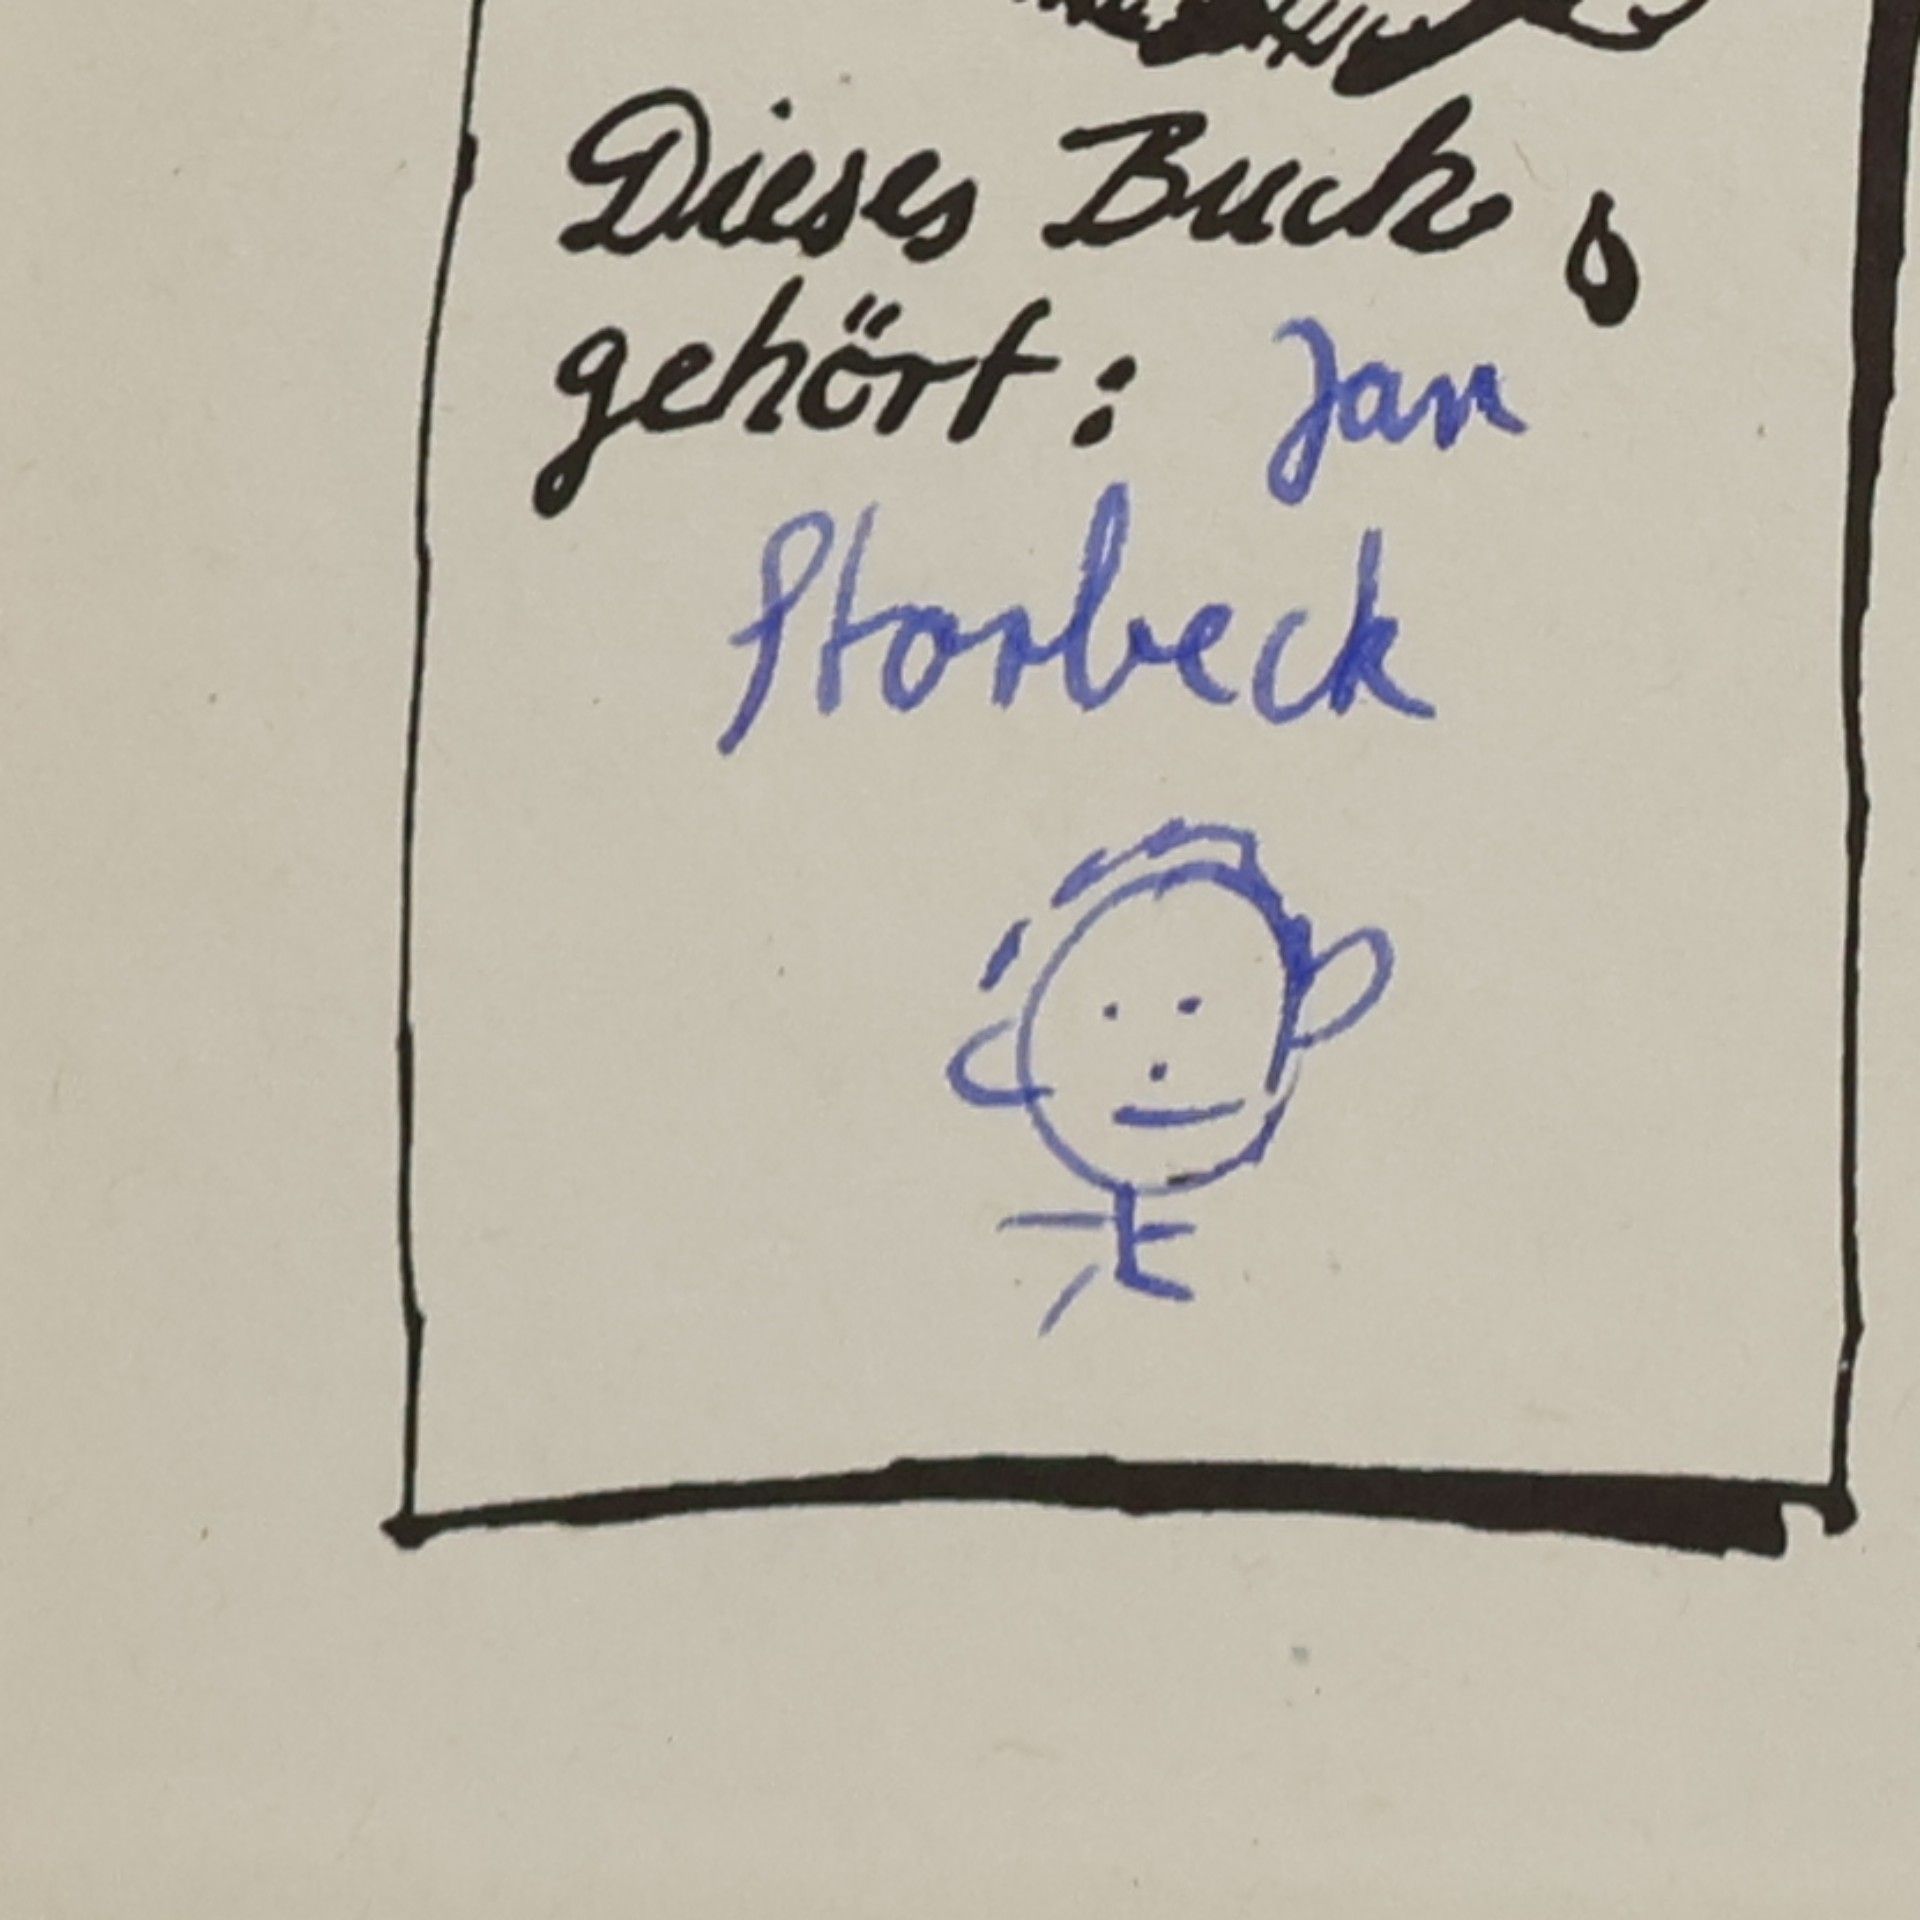 Dieses Buch
gehört: Jan
Storbeck